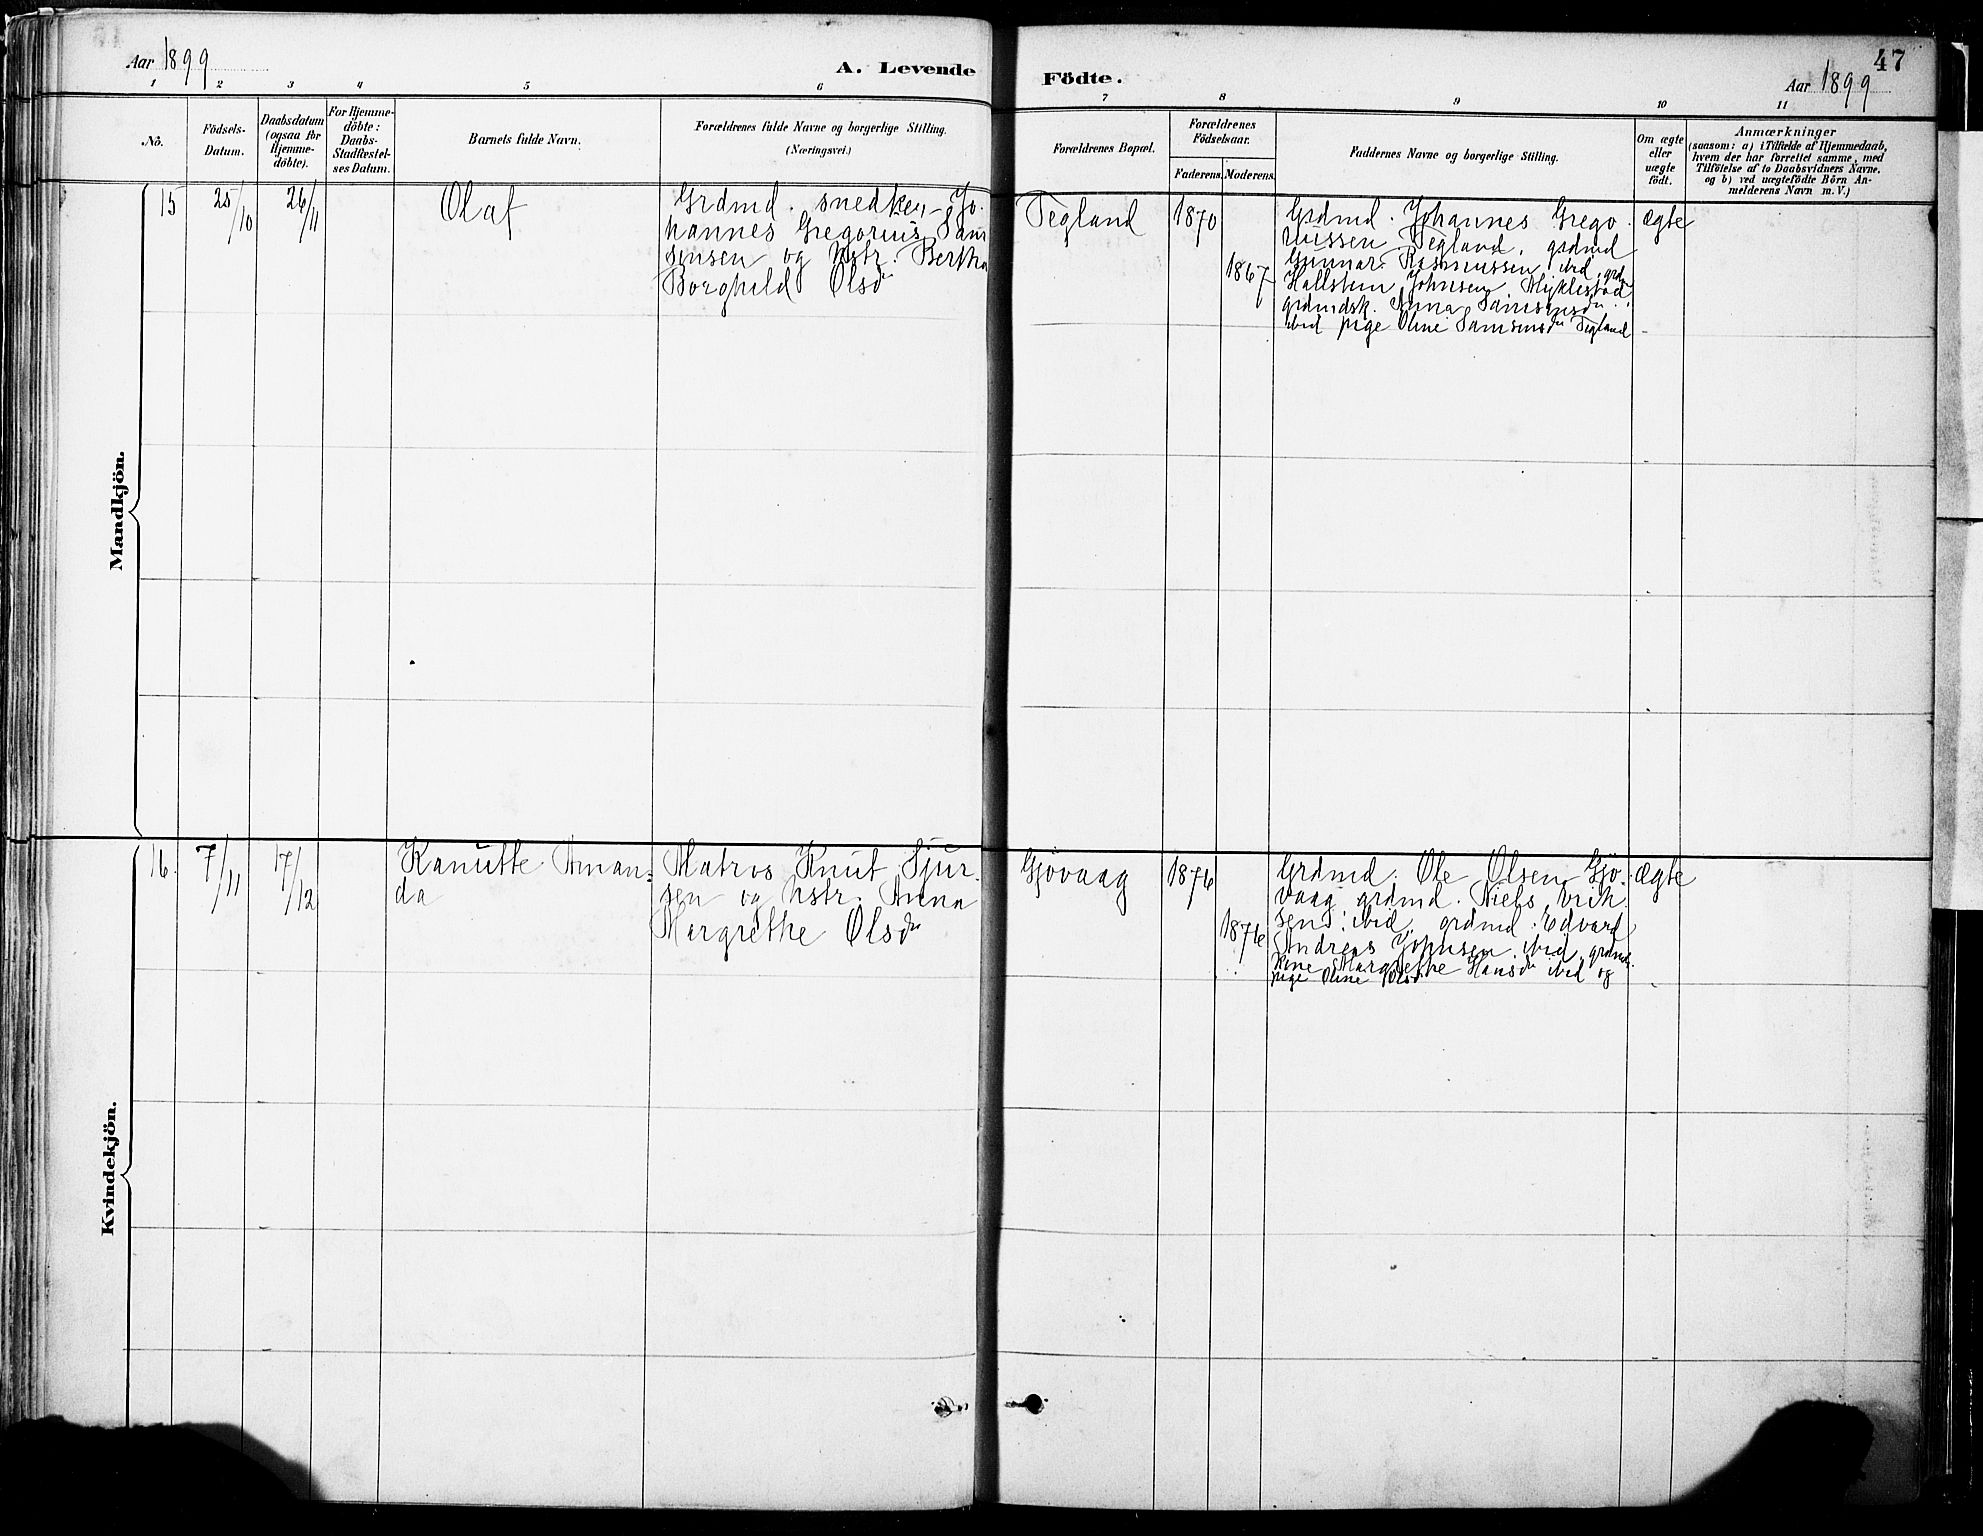 47
Aar 1899
A. Levende Födte.
Aar 1899
1 2 3 4 5 6 7 8 9 10 11
No.
Födsels-
Datum.
Daabsdatum
(ogsaa for
Hjemme-
döbte).
For Hjemme-
döbte:
Daabs-
Stadfæstel-
ses Datum.
Barnets fulde Navn.
Forældrenes fulde Navne og borgerlige Stilling.
(Næringsvei.)
Forældrenes Bopæl.
Forældrenes
Födselsaar.
Faderens. Moderens.
Faddernes Navne og borgerlige Stilling.
Om ægte
eller
uægte
födt.
Anmærkninger
(saasom: a) i Tilfælde af Hjemmedaab,
hvem der har forrettet samme, med
Tilföielse af to Daabsvidners Navne.
og b) ved uægtefödte Börn An-
melderens Navn m. V.)
Mandkjön.
15
25/10
26/11
Olaf
Grdmd. snedker Jo-
hannes Gregorius Sam
sensen og Hstr. Bertha
Borghild Olsdr
Tegland
1870
1867
Grdmd. Johannes Grego.
riussen Tegland, grdmd
Gunnar Rasmussen ibid, grdm
Hallstein Johnsen Myklestad
grdmdsk. Anna Samsonsdr
ibid pige Oline Samsonsdr Tegland
ægte
Kvindekjön.
16.
7/11
17/12
Kanutte Aman-
da
Matros Knut Sjur.
sen og Hstr. Anna
Margrethe Olsdr
Gjövaag
1876
1876
Grdmd. Ole Olsen Gjö.
vaag grdmd. Niels Erik
sen ibid, grdmd. Edvard
Andreas Johnsen ibid, grdmds.
kone Margrethe Hansdr ibid og
pige Oline Olsdr
ægte